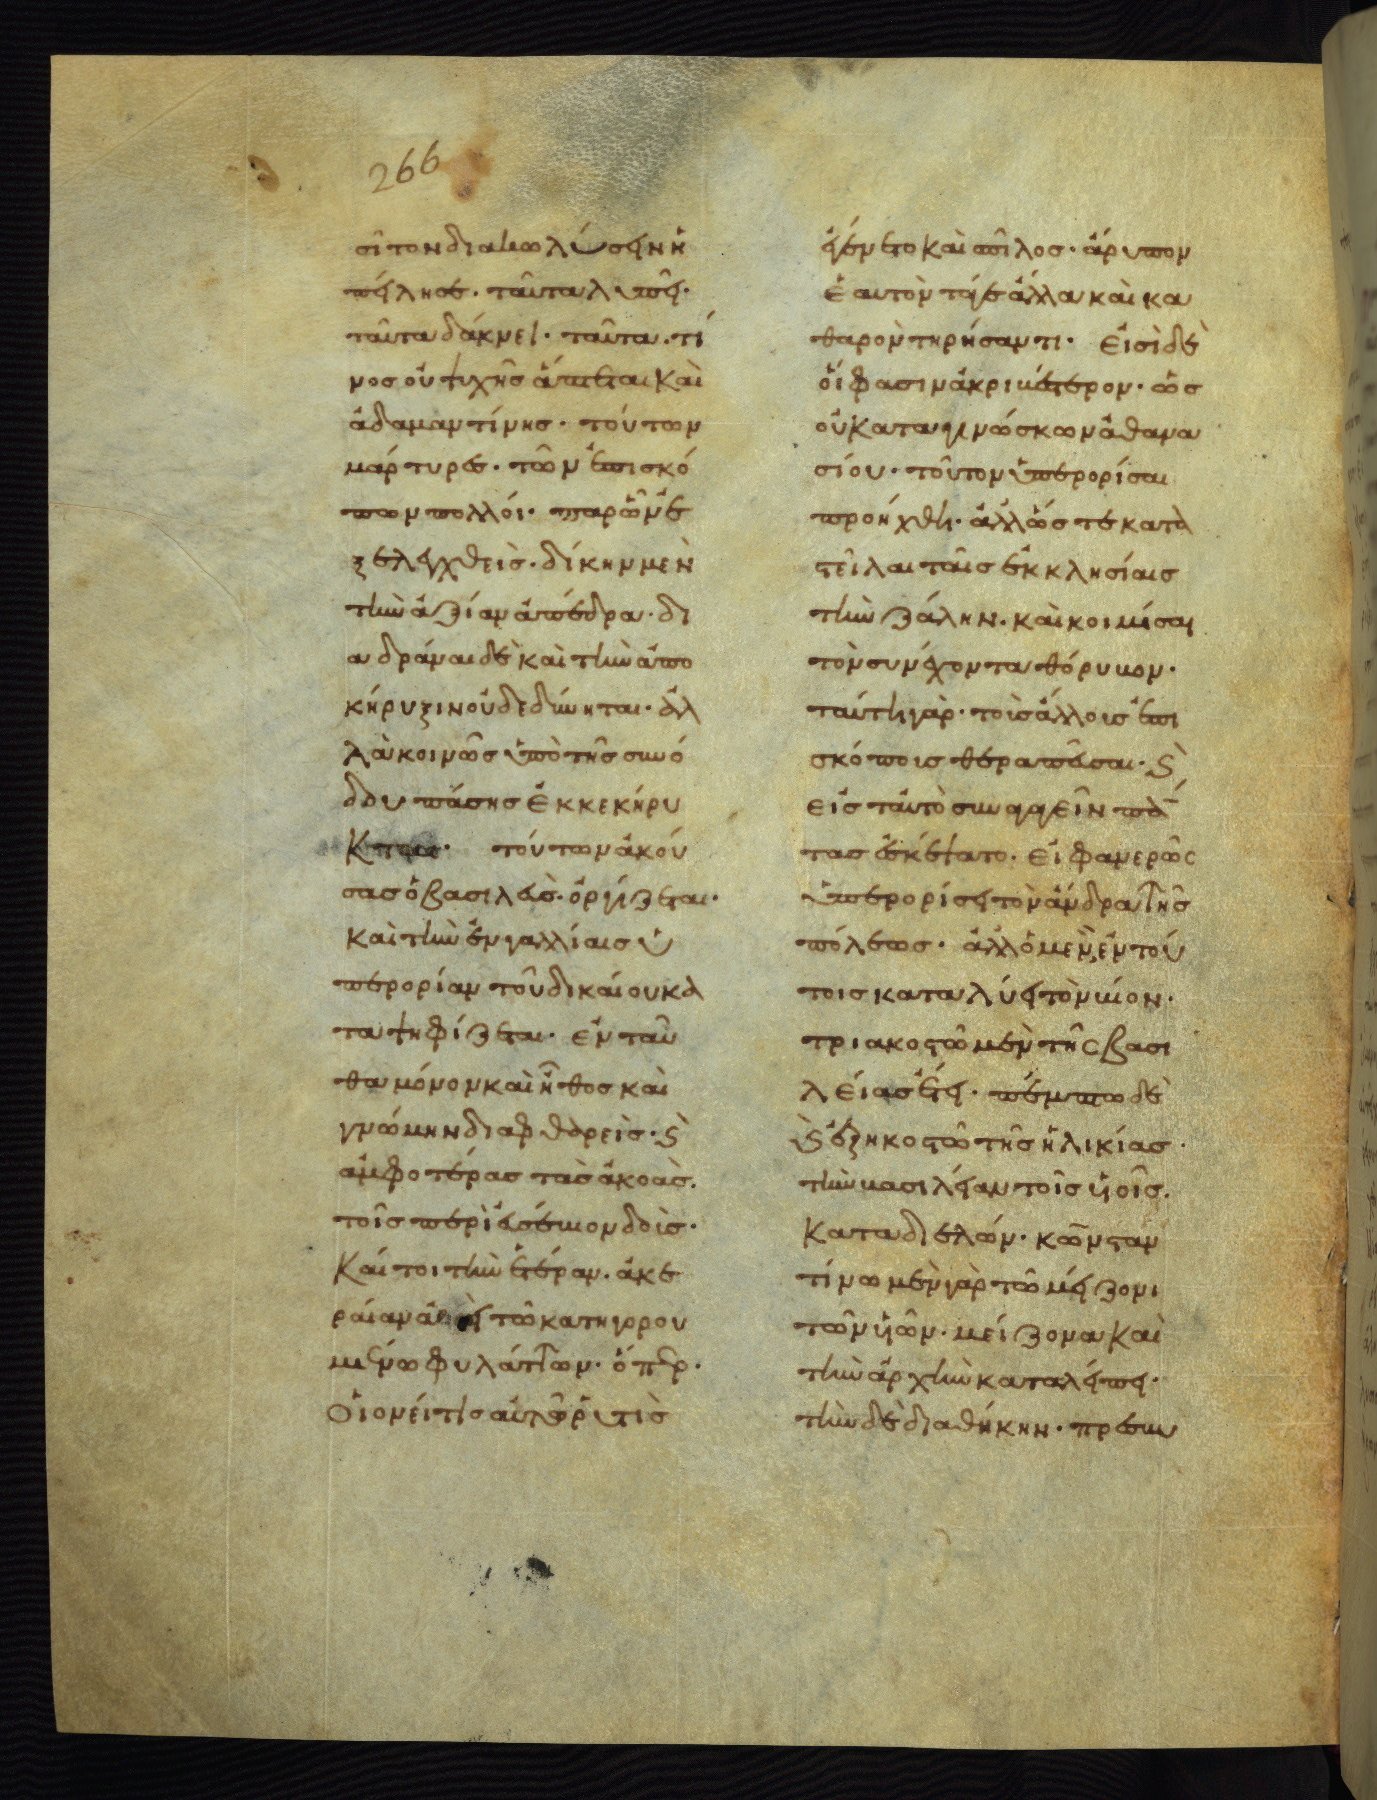 266
σῖτον διακωλύσειν ἠ
πείλησε· ταῦτα λυπεῖ·
ταῦτα δάκνει· ταῦτα· τί
νος οὐ ψυχῆς ἅπτεται καὶ
ἀδαμαντίνης· τούτων
μάρτυρες· τῶν ἐπισκό
πων πολλοί· παρ ὧν ἐ
ξελεγχθεὶς· δίκην μὲν
τὴν ἀξίαν ἀπέδρα· δι
αδράναι δὲ καὶ τὴν ἀπο
κήρυξιν οὐ δεδύνηται· ἀλ
λὰ κοινῶς ὑπὸ τῆς συνό
δου πάσης ἐκκεκήρυ
κται· τούτων ἀκού
σας ὁ βασιλεὺς· ὀργίζεται·
καὶ τὴν ἐν γαλλίαις ὑ
περορίαν τοῦ δικαίου κα
ταψηφίζεται· ἐνταῦ
θα μόνον καὶ ἦθος καὶ
γνώμην διαφθαρεὶς· καὶ
ἀμφοτέρας τὰς ἀκοὰς·
τοῖς περὶ εὐσέβιον δοὺς·
καίτοι τὴν ἑτέραν· ἀκε
ραίαν ἀεὶ τῶ κατηγορου
μένω φυλάττων· ὅπερ·
οἱονεί τις αὐτῶ ῥύπος
ἐγένετο καὶ σπῖλος· ἄρυπον
ἑαυτὸν τά γε ἄλλα καὶ κα
θαρὸν τηρήσαντι· εἰσὶ δὲ
οἵ φασιν ἀκριβέστερον· ὡς
οὐ καταγινώσκων ἀθανα
σίου· τοῦτον ὑπερορίσαι
προήχθη· ἀλλ ὥστε κατα
στεῖλαι ταῖς ἐκκλησίαις
τὴν ζάλην· καὶ κοιμίσαι
τὸν συνέχοντα θόρυβον·
ταύτη γὰρ· τοὺς ἄλλους ἐπι
σκόπους θεραπεῦσαι· καὶ
εἰς ταὐτὸ συναγαγεῖν πάν
τας ἐσκέψατο· εἰ φανερῶς
ὑπερορίσει τὸν ἄνδρα τῆς
πόλεως· ἀλλ ὁ μὲν ἐν τού
τοις καταλύει τὸν βίον·
τριακοστῶ μὲν τῆς βασι
λείας ἔτει· πέμπτω δὲ
καὶ ἑξηκοστῶ τῆς ἡλικίας·
τὴν βασιλείαν τοῖς υἱοῖς·
καταδιελών· κωνσταν
τίνω μὲν γὰρ τῶ μείζονι
τῶν υἱῶν· μείζονα καὶ
τὴν ἀρχὴν καταλείπει·
τὴν δὲ διαθήκην· πρεσβυ